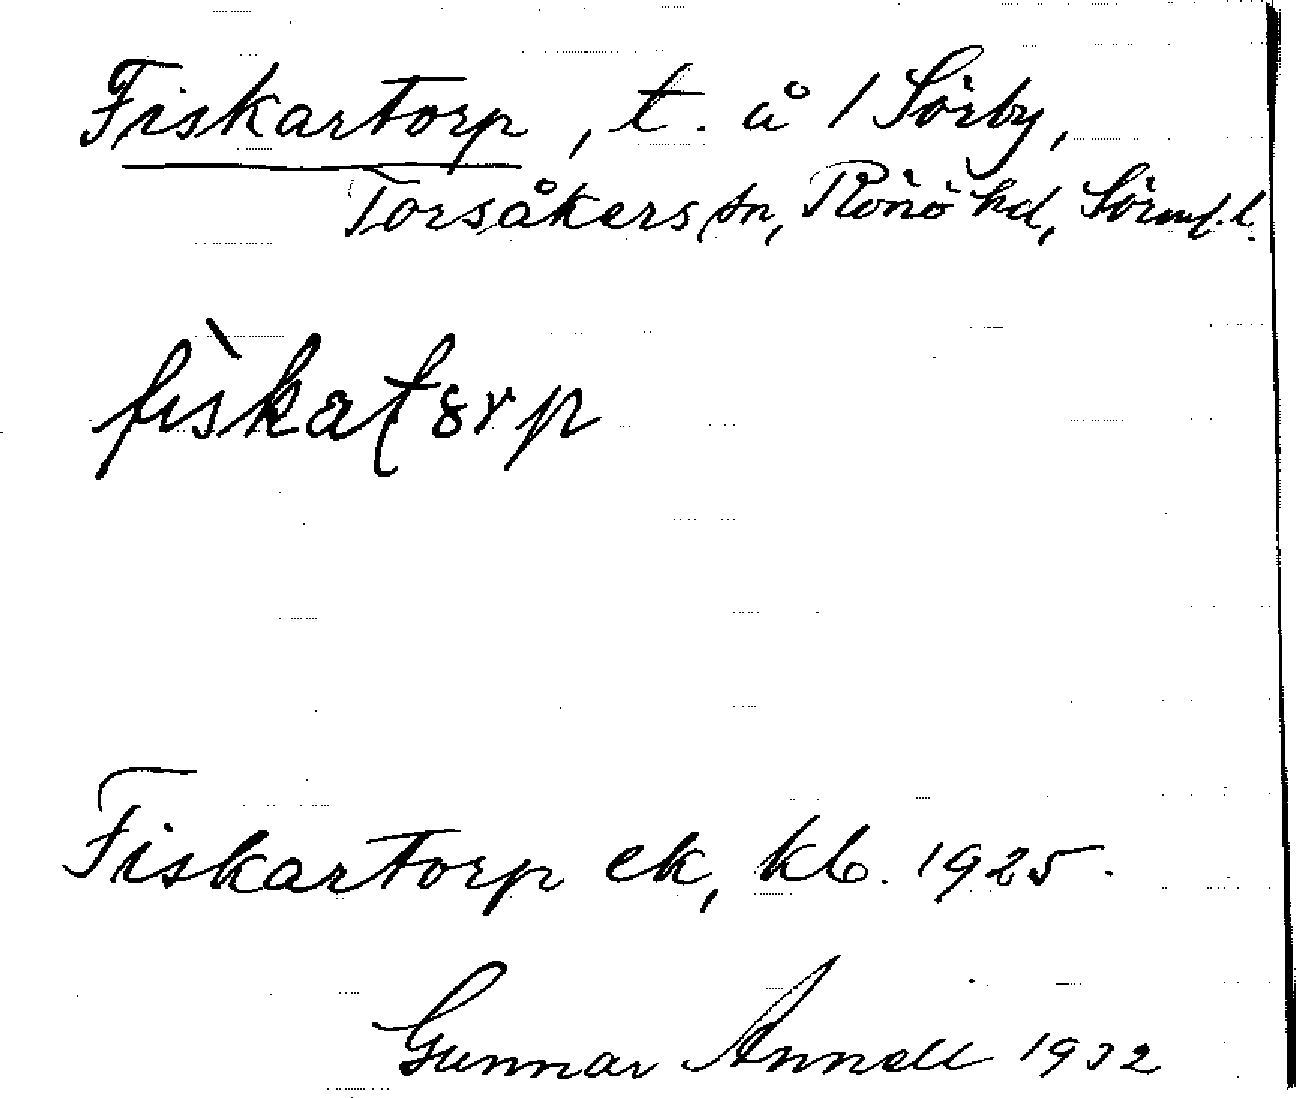 Fiskartorp, t. å 1 Sörby,
Torsåkers sn, Rönö hd, Sörml. l.
fìskatɔrp
Fiskartorp ek, kb. 1925.
Gunnar Annell 1932